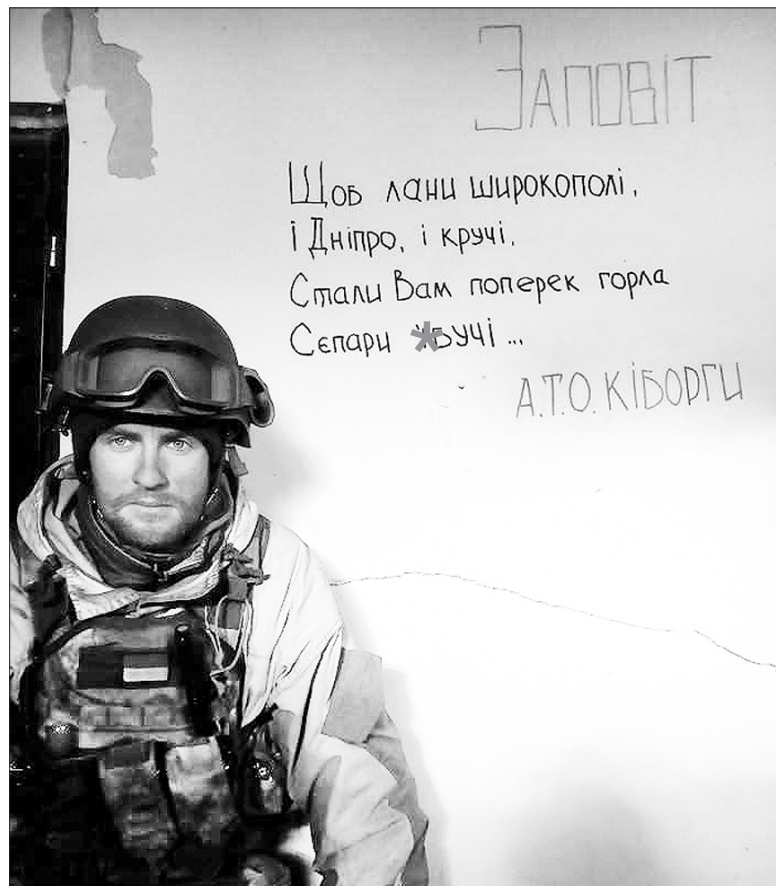 Заповіт
Щоб лани широкополі,
і Дніпро, і кручі,
Стали Вам поперек горла
Сєпари *бучі ...
А.Т.О. Кіборги